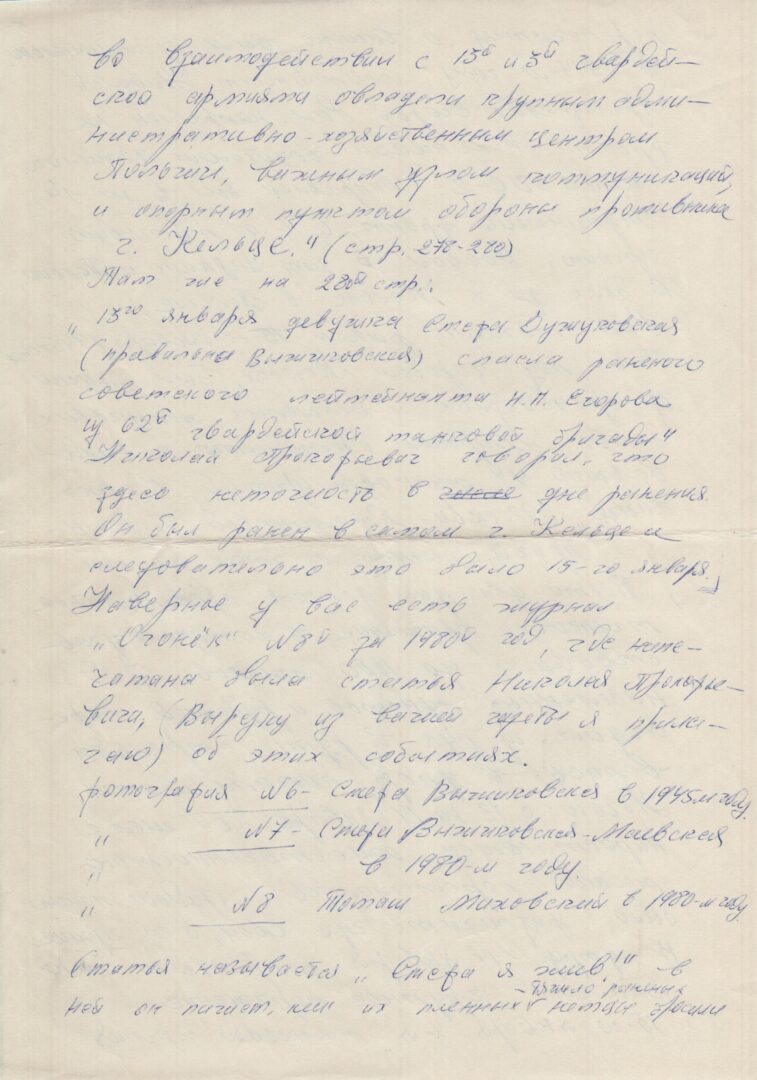 во взаимодействии с 13й и 3й гвардей-
ской армиями овладели крупным адми-
нистративно-хозяйственным центром
Польши, важным узлом коммуникаций,
и опорным пунктом обороны противника
г. Кельце." (стр. 278-280)
Там же на 280й стр.:
„13го января девушка Стефа
(правильно Вычиховская) спасла раненого
советского лейтенанта Н.П. Егорова
из 62й гвардейской танковой бригады"
Николай Прокофьевич говорил, что
здесь неточность в числе дне ранения.
Он был ранен в самом г. Кельце и
следовательно это было 15-го января.
Наверное у вас есть журнал
„Огонёк" N8й за 1980й год, где напе-
чатана была статья Николая Прокофье-
вича, (Вырезку из вашей газеты я прила-
гаю) об этих событиях.
фотография N6- Стефа Вычиховская в 1945м году.
„ N7- Стефа Вычиховская-Маевская
„ в 1980-м году.
„ N8 Томаш Миховский в 1980-м году
Статья называется „Стефа я жив!" в
- тяжело раненых
ней он пишет, как их пленных v немцы бросили